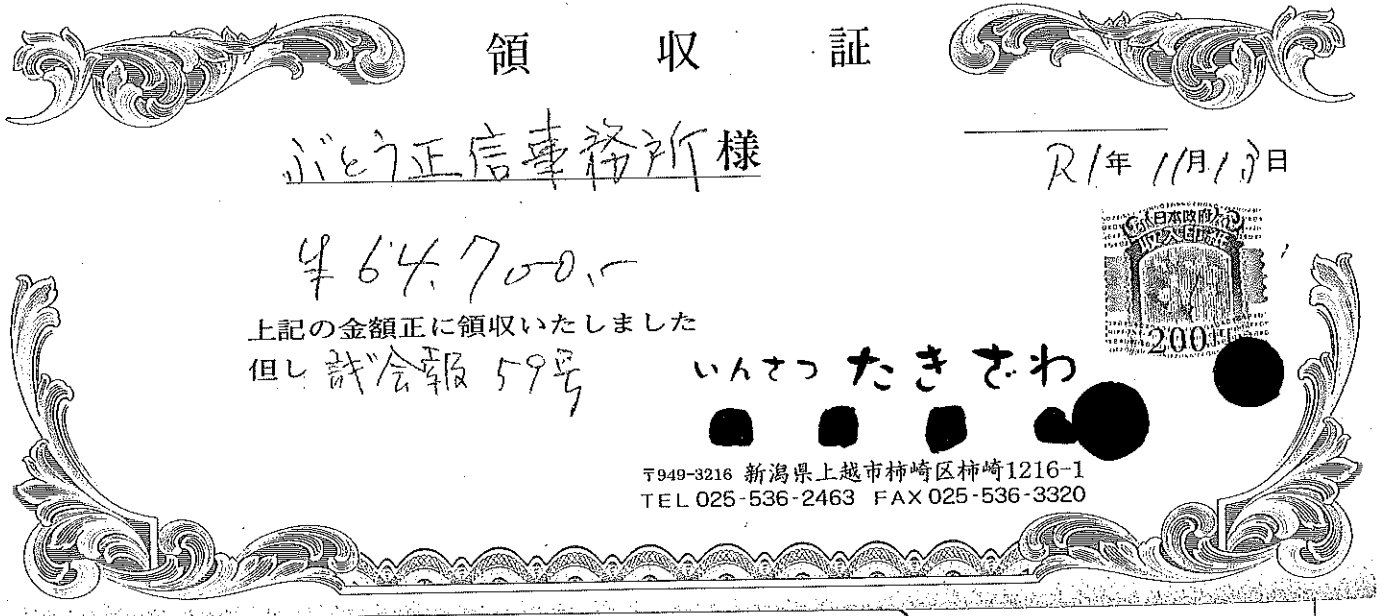 領 収 証
ぶとう正信事務所 様
R1年 11月13日
¥64,700.-
日本政府
収入印紙
200円
上記の金額正に領収いたしました
但し 議会報 59号
いんさつ たきざわ
〒949-3216 新潟県上越市柿崎区柿崎1216-1
TEL 025-536-2463 FAX 025-536-3320